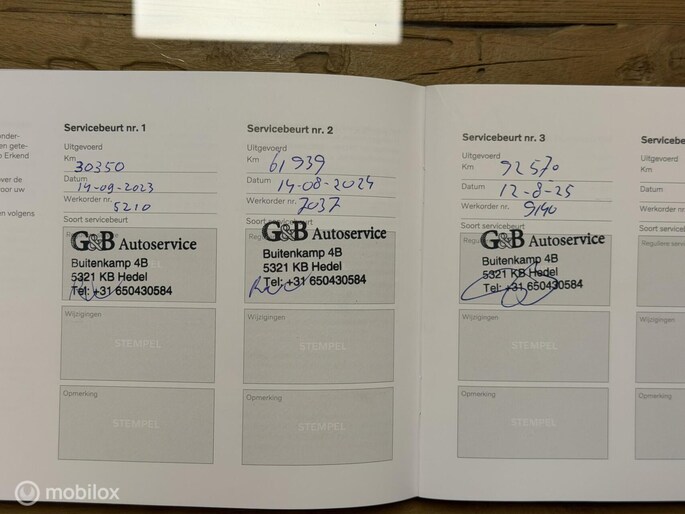 onder-
en gete-
e Erkend
ver de
oor uw
en volgens
Servicebeurt nr. 1
Uitgevoerd
Km 30350
Datum 14-09-2023
Werkorder nr. 5210
Soort servicebeurt
G&B Autoservice
Buitenkamp 4B
5321 KB Hedel
Tel: +31 650430584
Wijzigingen
STEMPEL
Opmerking
STEMPEL
Servicebeurt nr. 2
Uitgevoerd
Km 61939
Datum 14-08-2024
Werkorder nr. 7037
Soort
G&B Autoservice
Buitenkamp 4B
5321 KB Hedel
Tel: +31 650430584
Wijzigingen
STEMPEL
Opmerking
STEMPEL
Servicebeurt nr. 3
Uitgevoerd
Km 92570
Datum 12-8-25
Werkorder nr. 9140
Soort servicebeurt
G&B Autoservice
Buitenkamp 4B
5321 KB Hedel
Tel: +31 650430584
Wijzigingen
STEMPEL
Opmerking
STEMPEL
Servicebe
Uitgevoerd
Km
Datum
Werkorder nr.
Soort servicebe
Reguliere servi
Wijzigingen
Opmerking
mobilox